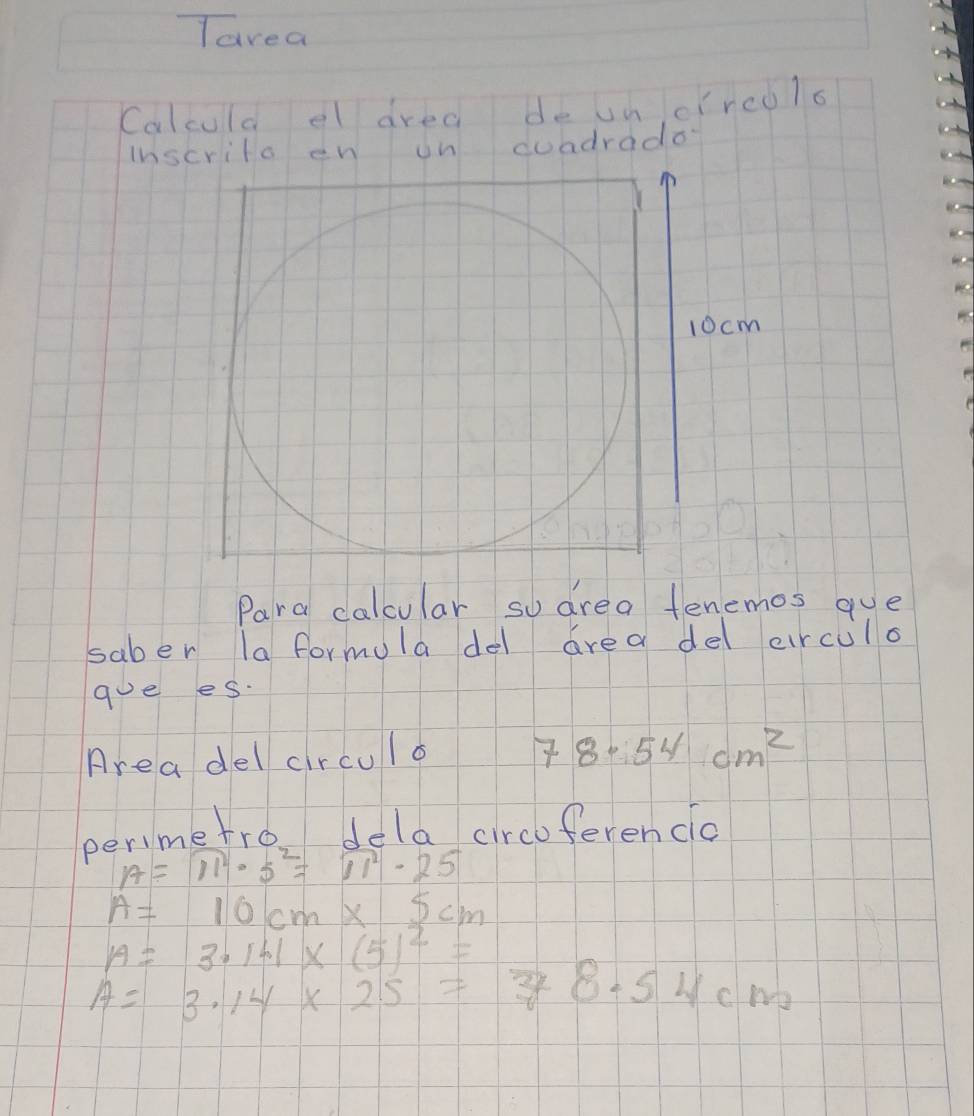 Tarea
Calcula el área de un círculo
inscrito en un cuadrado
10cm
Para calcular su área tenemos que
saber la formula del área del circulo
que es.
Area del circulo 78.54 cm²
perimetro dela circuferencia
A = π · 5² = π · 25
A = 10cm x 5cm
A = 3.141 x (5)² =
A = 3.14 x 25 = 78.54cm